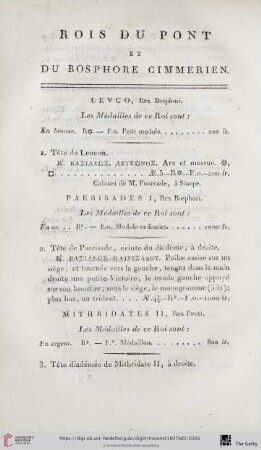 ROIS DU PONT
ET
DU BOSPHORE CIMMERIEN.
LEVCO, Rex Bosphori.
Les Médailles de ce Roi sont :
En bronze. R✲. — F.o. Petit module. ........ 200 fr.
1. Tête de Leucon.
℞. ΒΑΣΙΛΕΩΣ. ΛΕΥΚΩΝΟΣ. Arc et massue.
Æ.5.—R✲.—F.o.—200 fr.
Cabinet de M. Fourcade, à Sinope.
PAERISADES I, Rex Bosphori.
Les Médailles de ce Roi sont :
En or. ... R⁸. — F.o. Module ordinaire. ....... 1000 fr.
2. Tête de Paerisade, ceinte du diadème, à droite.
℞. ΒΑΣΙΛΕΩΣ. ΠΑΙΡΙΣΑΔΟΥ. Pallas assise sur un
siège, et tournée vers la gauche, tenant dans la main
droite une petite Victoire, le coude gauche appuyé
sur son bouclier; sous le siège, le monogramme (1131);
plus bas, un trident. ... —R⁸.—F.o.—1000 fr.
MITHRIDATES II, Rex Ponti.
Les Médailles de ce Roi sont :
En argent. R⁸. — F.⁎. Médaillon. ........ 800 fr.
3. Tête diadémée de Mithridate II, à droite.
https://digi.ub.uni-heidelberg.de/diglit/mionnet1807bd2/0366
© Universitätsbibliothek Heidelberg